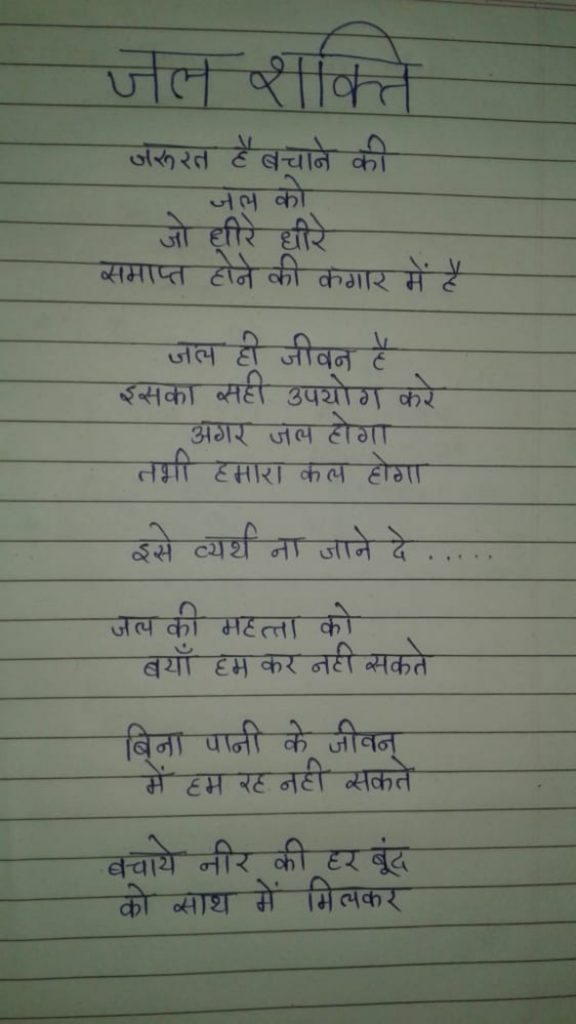 जल शक्ति
जरूरत है बचाने की
जल को
जो धीरे धीरे
समाप्त होने की कगार में है
जल ही जीवन है
इसका सही उपयोग करे
अगर जल होगा
तभी हमारा कल होगा
इसे व्यर्थ ना जाने दे .....
जल की महत्ता को
बयाँ हम कर नही सकते
बिना पानी के जीवन
में हम रह नही सकते
बचाये नीर की हर बूंद
को साथ में मिलकर